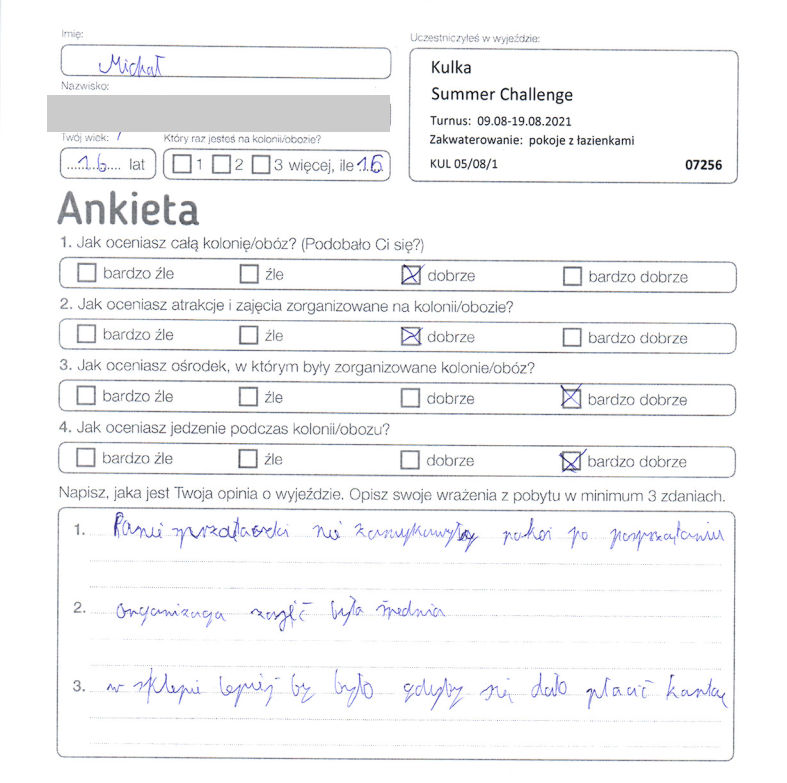 Imię:
Michał
Nazwisko:
Twój wiek:
16 lat
Który raz jesteś na kolonii/obozie?
1 2 3 więcej, ile 16
Uczestniczyłeś w wyjeździe:
Kulka
Summer Challenge
Turnus: 09.08-19.08.2021
Zakwaterowanie: pokoje z łazienkami
KUL 05/08/1 07256
Ankieta
1. Jak oceniasz całą kolonię/obóz? (Podobało Ci się?)
bardzo źle źle dobrze bardzo dobrze
2. Jak oceniasz atrakcje i zajęcia zorganizowane na kolonii/obozie?
bardzo źle źle dobrze bardzo dobrze
3. Jak oceniasz ośrodek, w którym były zorganizowane kolonie/obóz?
bardzo źle źle dobrze bardzo dobrze
4. Jak oceniasz jedzenie podczas kolonii/obozu?
bardzo źle źle dobrze bardzo dobrze
Napisz, jaka jest Twoja opinia o wyjeździe. Opisz swoje wrażenia z pobytu w minimum 3 zdaniach.
1. Panie nie pokoi po posprzątaniu
2. organizacja zajęć była średnia
3. w sklepie lepiej by było gdyby się dało płacić kartą